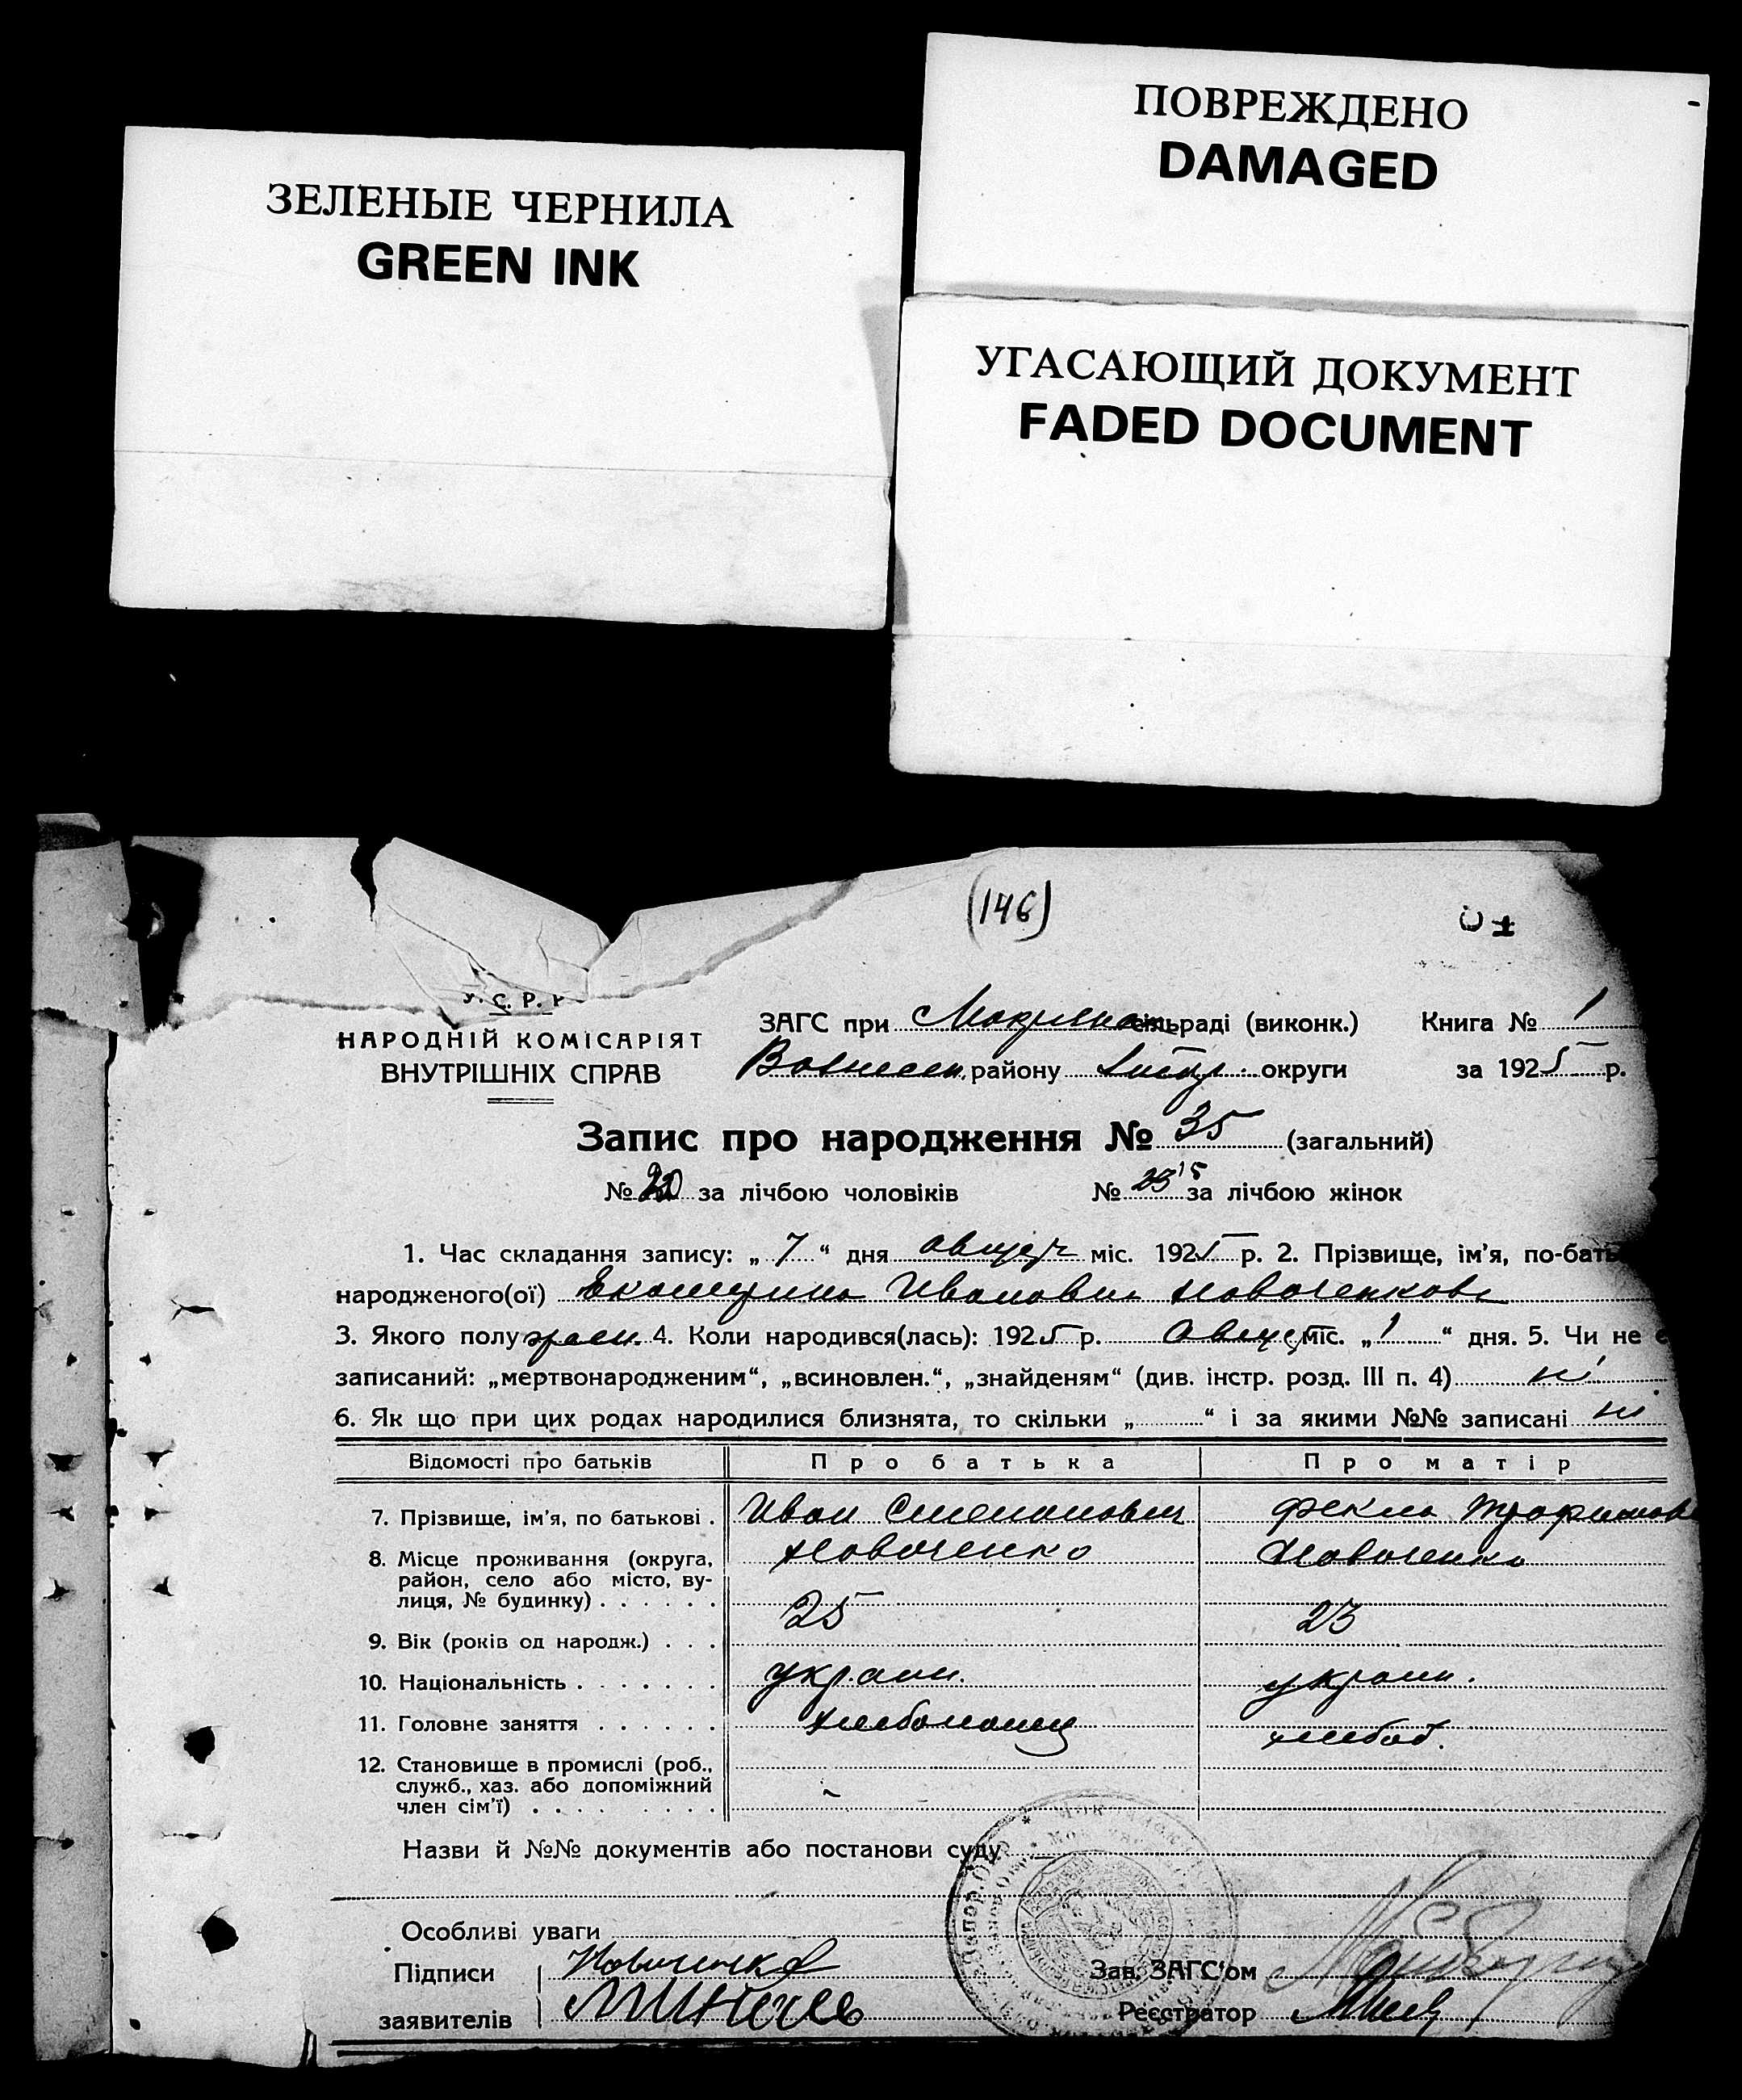 ПОВРЕЖДЕНО
DAMAGED
ЗЕЛЕНЫЕ ЧЕРНИЛА
GREEN INK
УГАСАЮЩИЙ ДОКУМЕНТ
FADED DOCUMENT
(146)
У. С. Р. Р.
НАРОДНІЙ КОМІСАРІЯТ
ВНУТРІШНІХ СПРАВ
ЗАГС при Мокрянск сільраді (виконк.) Книга № 1
Вознесен. району округи за 1925 р.
Запис про народження № 35 (загальний)
№ 20 за лічбою чоловіків № 15 за лічбою жінок
1. Час складання запису: „ 7 “ дня август міс. 1925 р. 2. Прізвище, ім'я, по-бать
народженого(ої) Екатерина Ивановна Новоченкова
3. Якого полу жен. 4. Коли народився(лась): 1925 р. Август міс. „ 1 “ дня. 5. Чи не є
записаний: „мертвонародженим“, „всиновлен.“, „знайденям“ (див. інстр. розд. III п. 4) ні
6. Як що при цих родах народилися близнята, то скільки „ “ і за якими №№ записані ні
Відомості про батьків Про батька Про матір
7. Прізвище, ім'я, по батькові . Иван Степанович Фекла Трофимов
8. Місце проживання (округа, Новоченко Новоченко
район, село або місто, ву-
лиця, № будинку) . . . . . .
9. Вік (років од народж.) . . . 25 23
10. Національність . . . . . . . украин. украин.
11. Головне заняття . . . . . . хлебопашец хлебоп.
12. Становище в промислі (роб.,
служб., хаз. або допоміжний
член сім'ї) . . . . . . . . .
Назви й №№ документів або постанови суду
Особливі уваги
Підписи Новоченко Зав. ЗАГС'ом
заявителів Реєстратор